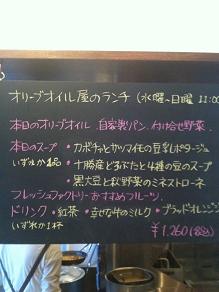 オリーブオイル屋のランチ (水曜〜日曜 11:00
本日のオリーブオイル 自家製パン 付け合せ野菜
本日のスープ ・カボチャとサツマイモの豆乳ポタージュ
いずれか1品 ・十勝産とまぶたと4種の豆のスープ
・黒大豆と秋野菜のミネストローネ
フレッシュファクトリーおすすめフルーツ
ドリンク ・紅茶 ・幸せな牛のミルク ・ブラッドオレンジ
いずれか1杯
¥1,260(税込)